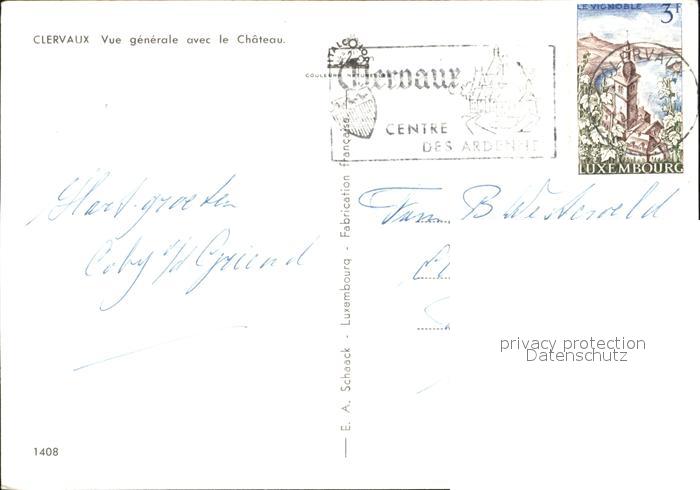 CLERVAUX Vue générale avec le Château.
ITALCOLOR
Clervaux
CENTRE
DES ARDENNE
LE VIGNOBLE 3F
CLERVAUX
LUXEMBOURG
Hart. groeten
Coby v/d Griend
Fam. B Westerveld
E. A. Schaack - Luxembourg - Fabrication française
privacy protection
Datenschutz
1408